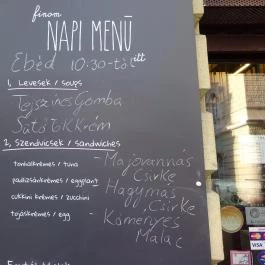 finom
NAPI MENÜ
Ebéd 10:30-tól
itt
1, Levesek / soups
Tejszínes Gomba
Sütőtökkrém
2, Szendvicsek / sandwiches
tonhalkrémes / tuna
padlizsánkrémes / eggplant
cukkini krémes / zucchini
tojáskrémes / egg
- Majorannás
Csirke
- Hagymás
Csirke
- Köményes
Malac